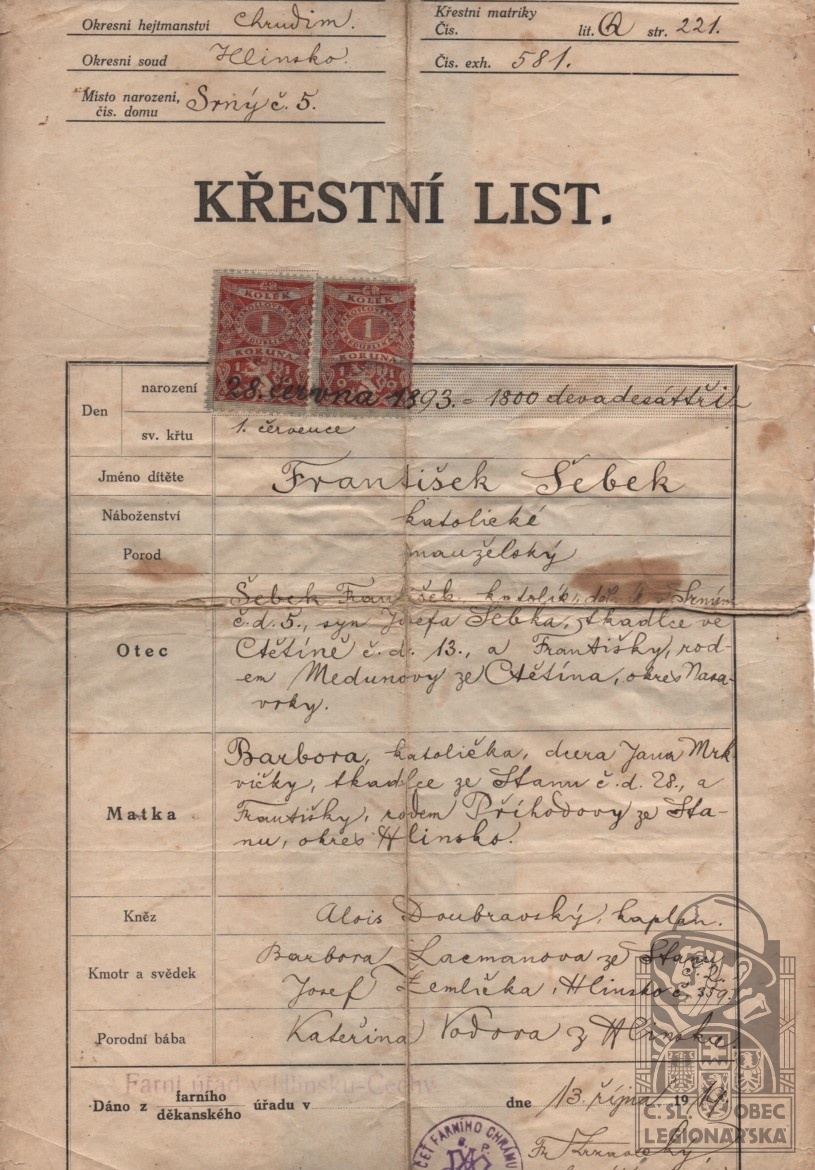 Okresní hejtmanství Chrudim.
Křestní matriky
Čís. lit. A str. 221.
Okresní soud Hlinsko.
Čís. exh. 581.
Místo narození,
čís. domu Srný č. 5.
KŘESTNÍ LIST.
KOLEK KOLEK
1 1
KORUNA KORUNA
Den
narození 28. června 1893. = 1800 devadesáttři
sv. křtu 1. července
Jméno dítěte František Šebek
Náboženství katolické
Porod manželský
Otec
Šebek František, katolík, v Srném
č.d. 5., syn Josefa Šebka, tkadlce ve
Ctětíně č. d. 13., a Františky, rod-
em Medunovy ze Ctětína, okres Nasa-
vrky.
Matka
Barbora, katolička, dcera Jana Mrk-
vičky, tkadlce ze Stanu č.d. 28., a
Františky, rodem Příhodovy ze Sta-
nu, okres Hlinsko.
Kněz Alois Doubravský, kaplan.
Kmotr a svědek
Barbora Lacmanova ze Stanu
č. 2.
Josef Zemlička, Hlinsko č. 359.
Porodní bába Kateřina Vodova z Hlinska.
Farní úřad v Hlinsku-Čechy
Dáno z farního
děkanského úřadu v dne 13. října 1919.
FARNÍHO CHRÁMU
Č. SL. OBEC
LEGIONÁŘSKÁ